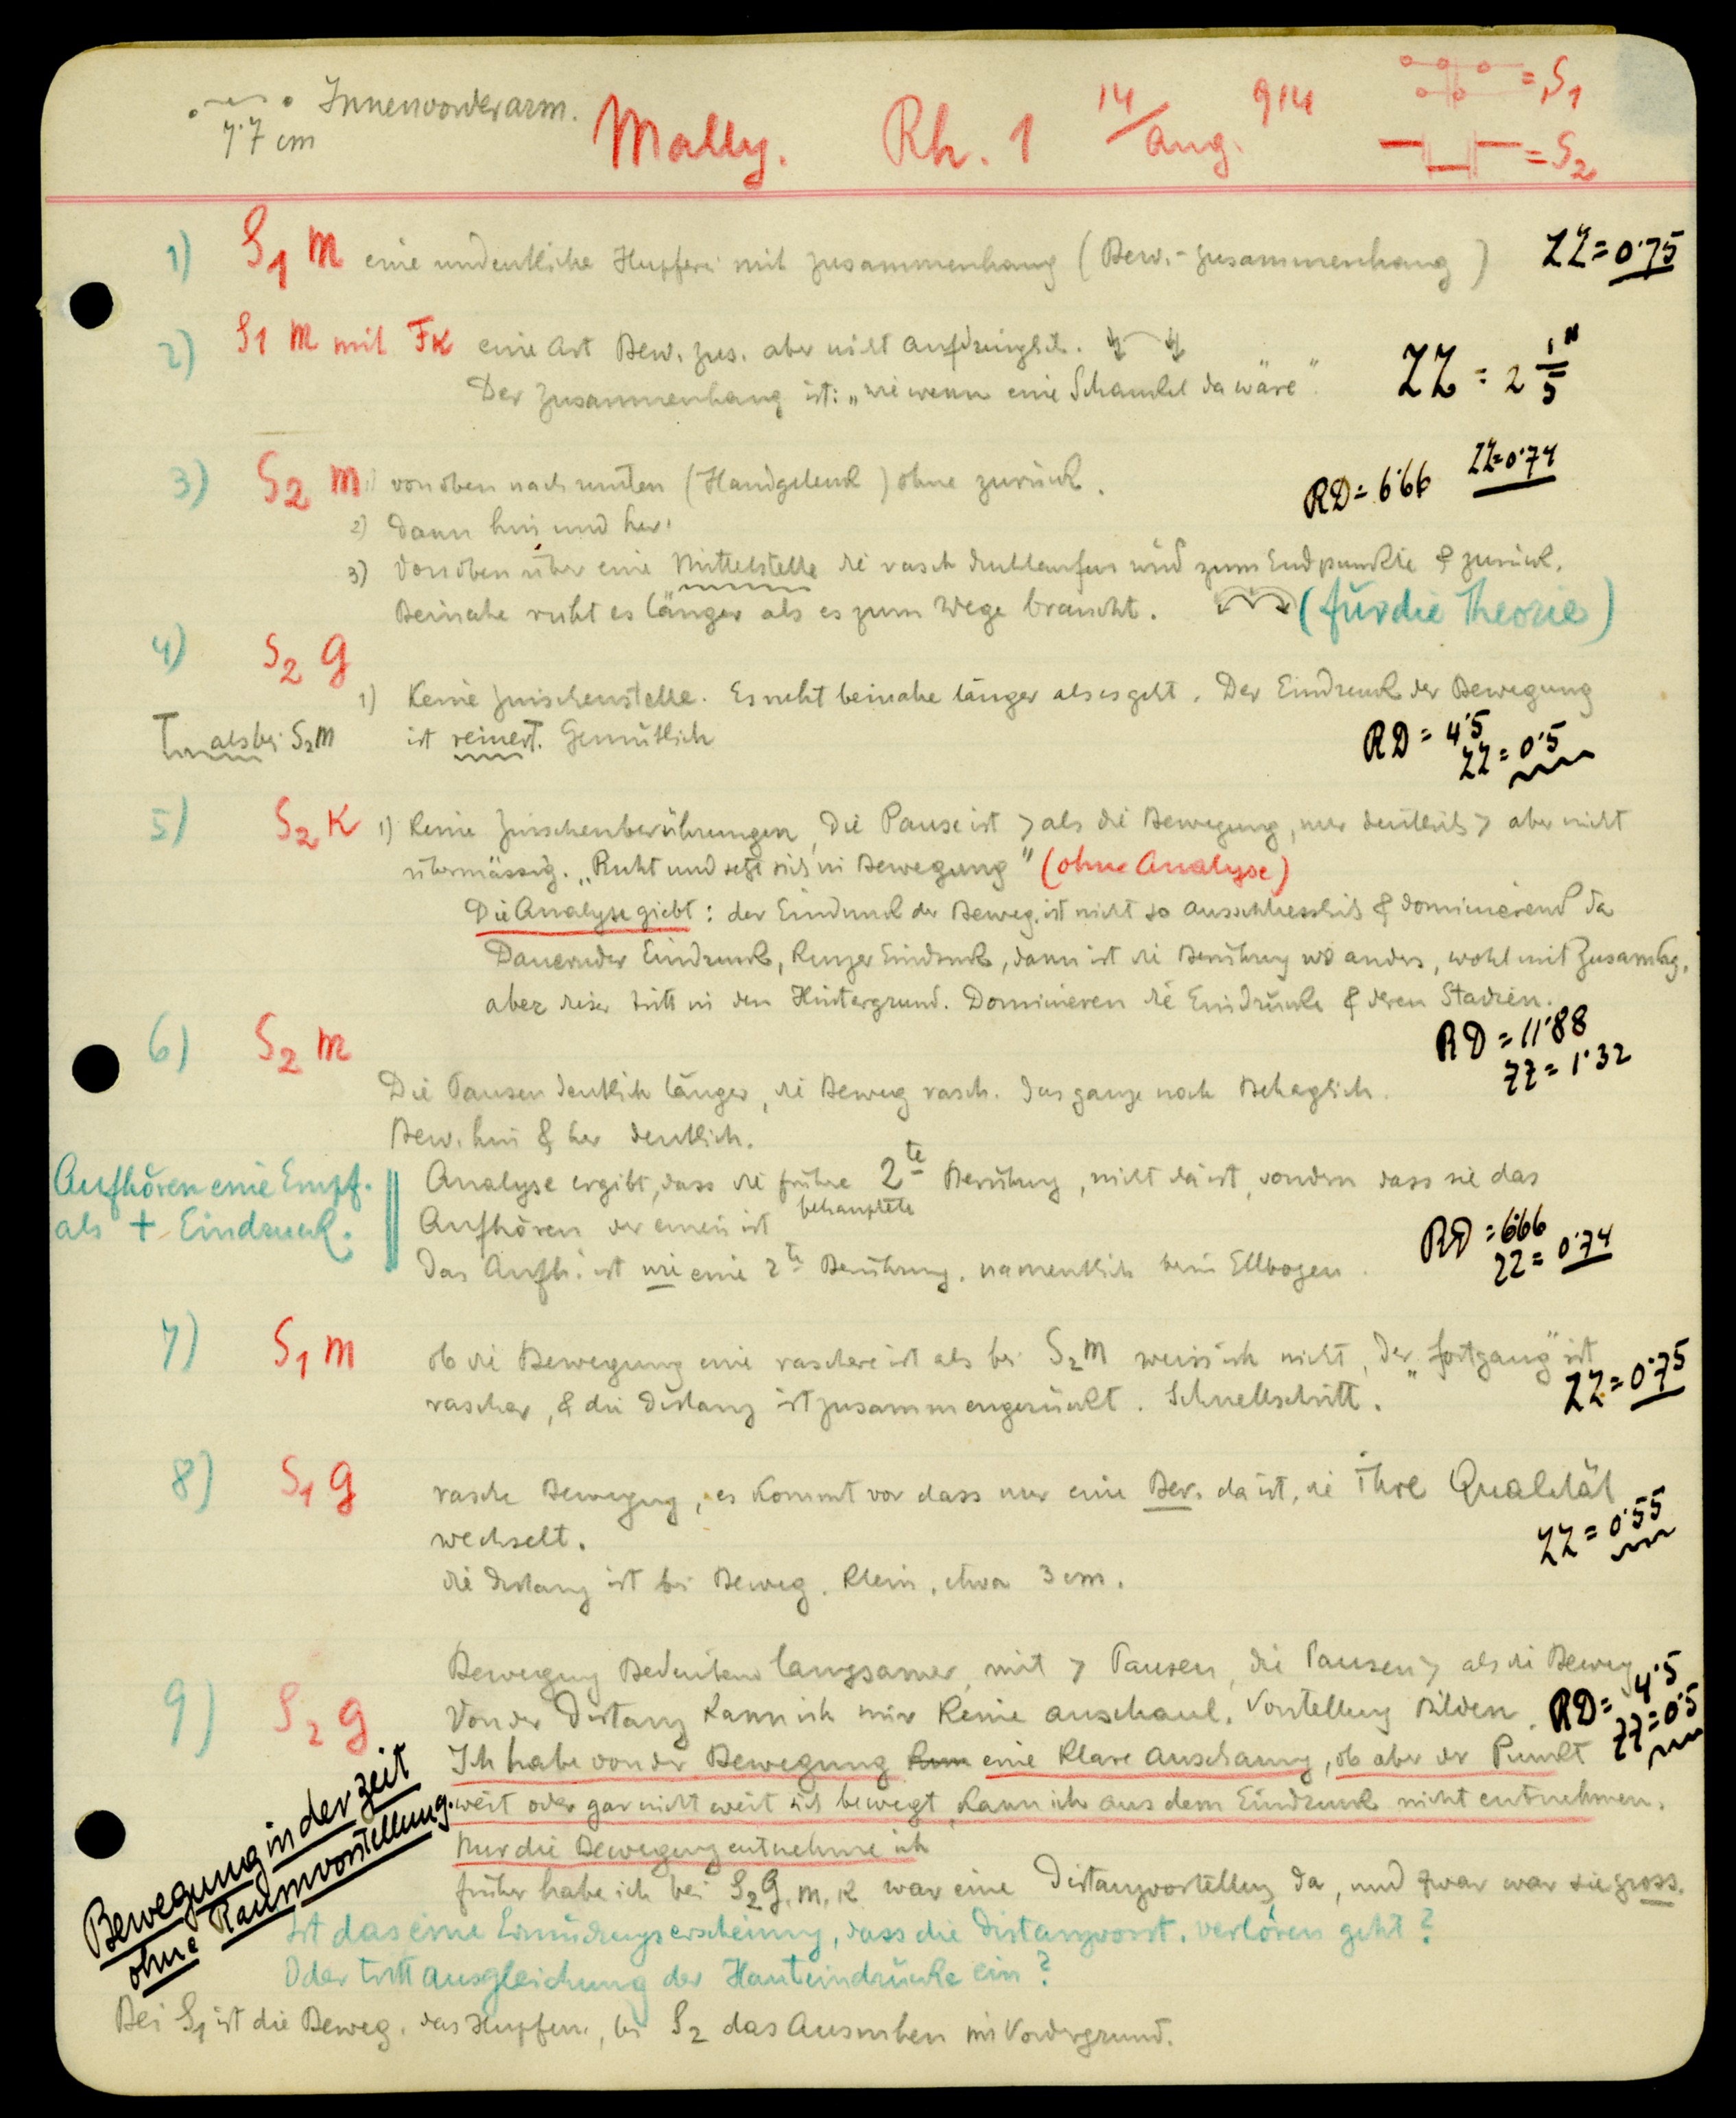 Innenvorderarm.
7·7 cm
Mally. Rh. 1 14/Aug. 914
= S1
= S2
1) S1 M eine undeutliche Hupferei mit Zusammenhang (Bew.-Zusammenhang) ZZ = 0·75
2) S1 M mit FK eine Art Bew. zus. aber nicht aufdringlich.
Der Zusammenhang ist: „wie wenn eine Schaukel da wäre". ZZ = 2 1/5"
3) S2 M 1) von oben nach unten (Handgelenk) ohne zurück. RD = 6·66 ZZ=0·74
2) dann hin und her.
3) von oben über eine Mittelstelle die rasch durchlaufen wird zum Endpunkte & zurück.
Beinahe ruht es länger als es zum Wege braucht. (für die Theorie)
4) S2 g
1) Keine Zwischenstelle. Es ruht beinahe länger als es geht. Der Eindruck der Bewegung
als bei S2M ist reiner. Gemütlich RD = 4·5
ZZ = 0·5
5) S2 K 1) Keine Zwischenberührungen, Die Pause ist > als die Bewegung, nur deutlich > aber nicht
übermässig. „Ruht und setzt sich in Bewegung" (ohne Analyse)
Die Analyse giebt: der Eindruck der Beweg. ist nicht so ausschliesslich & dominierend da
Dauernder Eindruck, kurzer Eindruck, dann ist die Berührung wo anders, wohl mit Zusamhg.
aber dieser tritt in den Hintergrund. Dominieren die Eindrücke & deren Stadien.
RD = 11·88
ZZ = 1·32
6) S2 M
Die Pausen deutlich länger, die Beweg rasch. das ganze noch Behaglich.
Bew. hin & her deutlich.
Aufhören eine Empf.
als + Eindruck.
Analyse ergibt, dass die frühere 2te Berührung, nicht da ist, sondern dass sie das
behauptete
Aufhören der einen ist
Das Aufh. ist wie eine 2te Berührung, namentlich beim Ellbogen.
RD = 6·66
ZZ = 0·74
7) S1 M ob die Bewegung eine raschere ist als bei S2M weiss ich nicht, der „Fortgang" ist
rascher, & die Distanz ist zusammengerückt. Schnellschritt. ZZ = 0·75
8) S1 g rasche Bewegung, es kommt vor dass nur eine Ber. da ist, die ihre Qualität
wechselt. ZZ = 0·55
die Distanz ist bei Beweg. klein, etwa 3 cm.
Bewegung Bedeutend langsamer, mit > Pausen, die Pausen > als die Beweg
9) S2 g Von der Distanz kann ich mir keine anschaul. Vorstellung bilden. RD = 4·5
ZZ = 0·5
Ich habe von der Bewegung eine klare Anschauung, ob aber der Punkt
weit oder gar nicht weit sich bewegt, kann ich aus dem Eindruck nicht entnehmen.
Nur die Bewegung entnehme ich
früher habe ich bei S2 g, m, K war eine Distanzvorstellung da, und zwar war sie gross.
Bewegung in der Zeit
ohne Raumvorstellung.
Ist das eine Ermüdungserscheinung, dass die Distanzvorst. verloren geht?
Oder tritt Ausgleichung der Hauteindrücke ein?
Bei S1 ist die Beweg. das Hupfen, bei S2 das Ausruhen im Vordergrund.